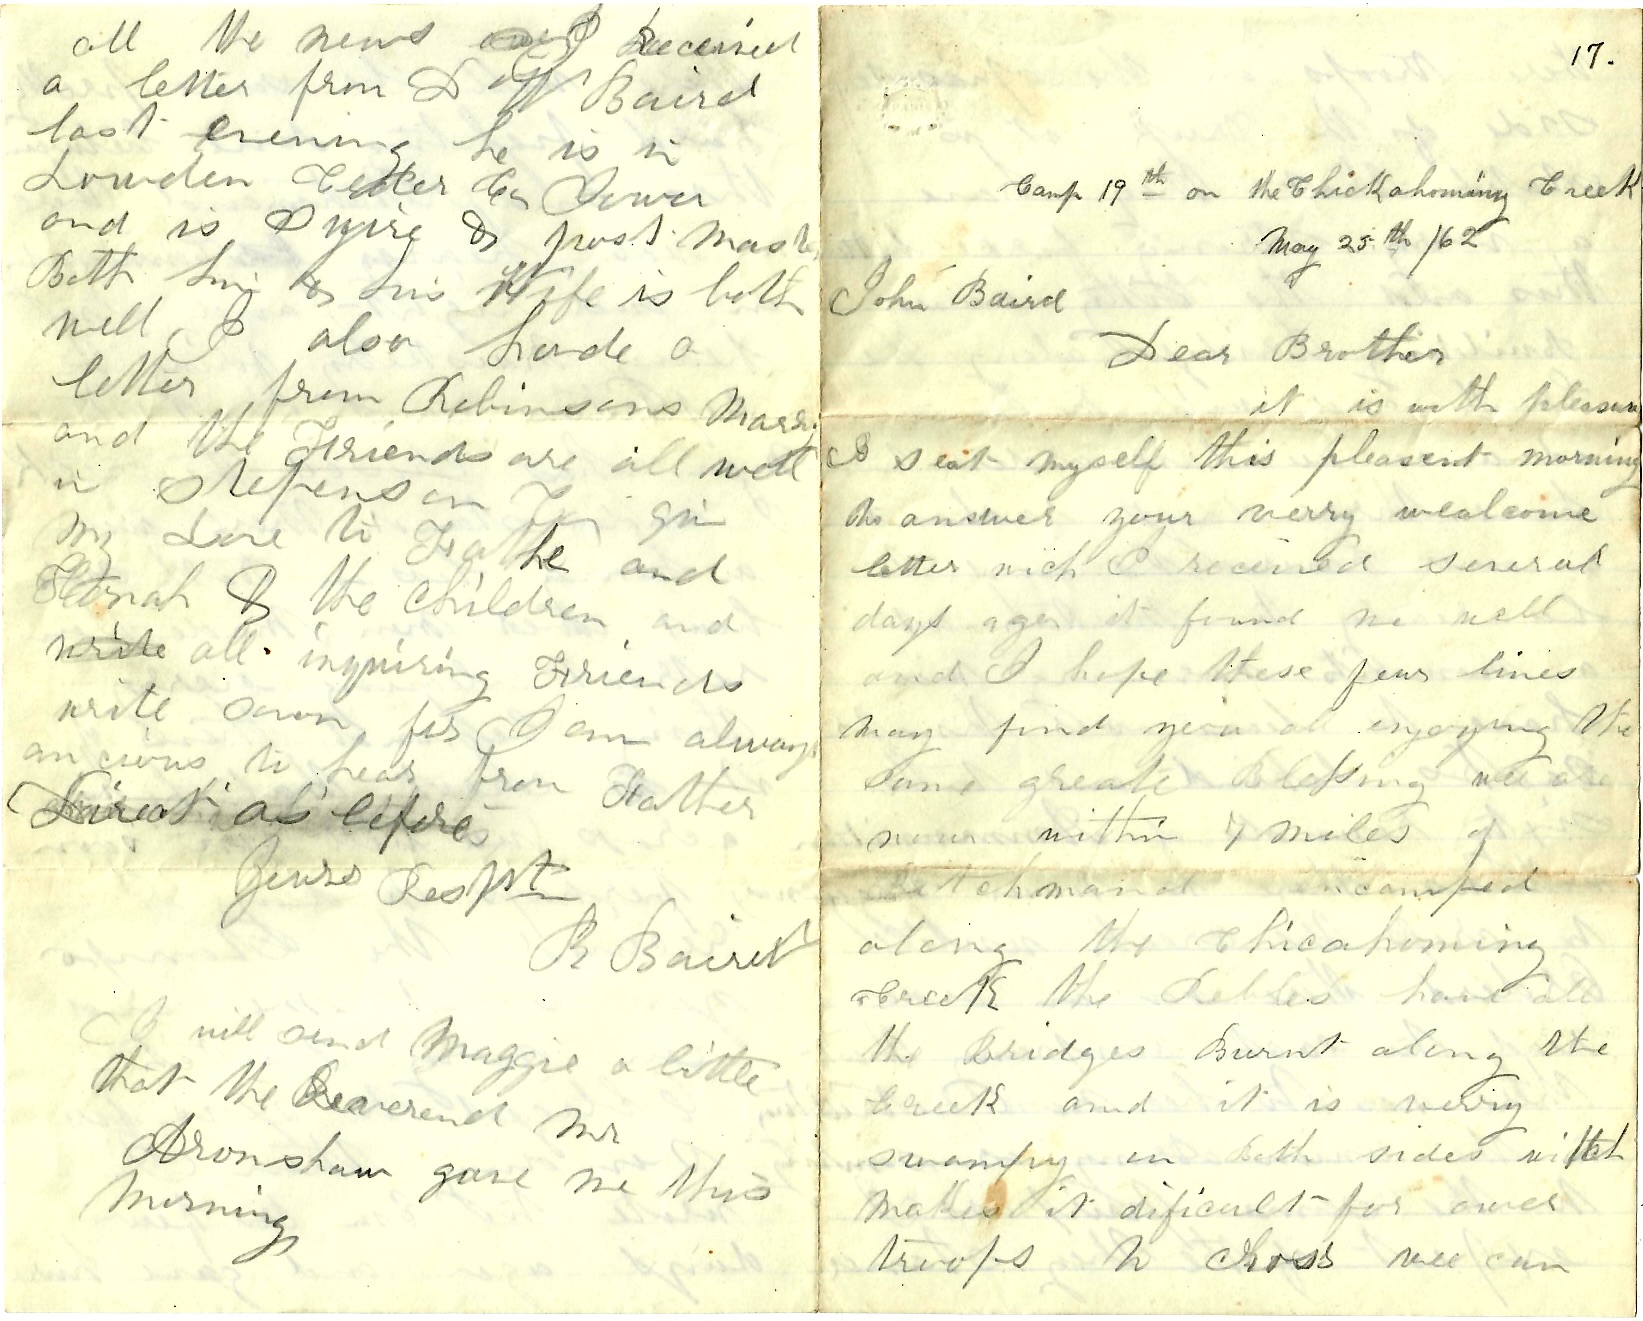 all the news I Received
a letter from D W Baird
last evening he is in
Lowden Ceder Co Iowa
and is Squire & post Mast
Both him & his Wife is both
well I also hade a
letter from Robinsons
and the Friends are all well
in Stepenson Co giv
my Love to Fathe and
& the Children and
write all inquiring Friends
write soon for I am always
ancious to hear from Father
Direct as before
Yours Respt
R Baird
I will send Maggie a little
that the Reaverend Mr
Aronshaw gave me this
Morning
17.
Camp 19th on the Chickahominy Creek
May 25th /62
John Baird
Dear Brother
it is with pleasure
I seat myself this pleasent morning
to answer your verry wealcome
letter wich I received several
days ago it found me well
and I hope these few lines
may find you al enjoying the
same greate Blessing wee are
now within 7 miles of
Retchmand encamped
along the Chicahominy
Creek the Rebles have all
the Bridges Burnt along the
Creek and it is verry
swampy on Both sides witch
makes it dificult for ower
troops to Cross wee can